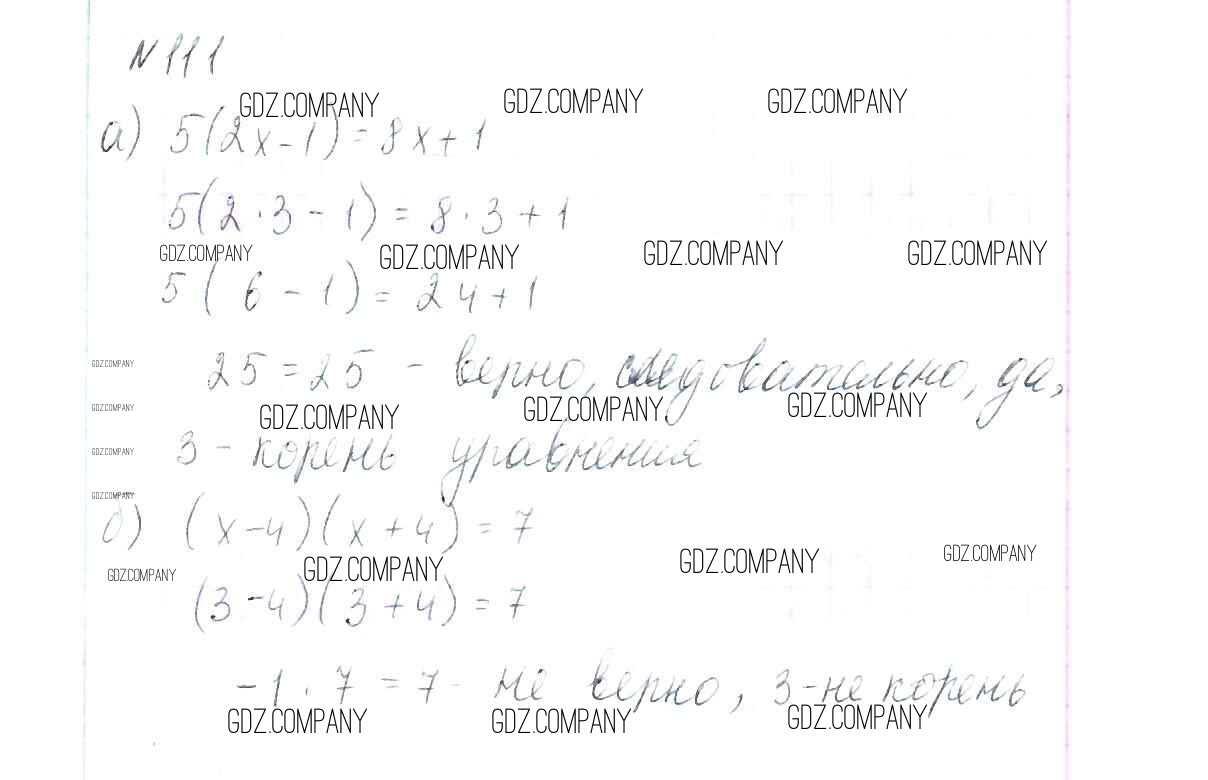 N 111
GDZ.COMPANY GDZ.COMPANY GDZ.COMPANY
а) 5(2x-1)=8x+1
5(2·3-1)=8·3+1
GDZ.COMPANY GDZ.COMPANY GDZ.COMPANY GDZ.COMPANY
5(6-1)=24+1
GDZ.COMPANY
25=25 - верно, следовательно, да,
GDZ.COMPANY
GDZ.COMPANY GDZ.COMPANY GDZ.COMPANY
GDZ.COMPANY
3 - корень уравнения
GDZ.COMPANY
б) (x-4)(x+4)=7
GDZ.COMPANY GDZ.COMPANY GDZ.COMPANY GDZ.COMPANY
(3-4)(3+4)=7
-1·7=7- не верно, 3-не корень
GDZ.COMPANY GDZ.COMPANY GDZ.COMPANY